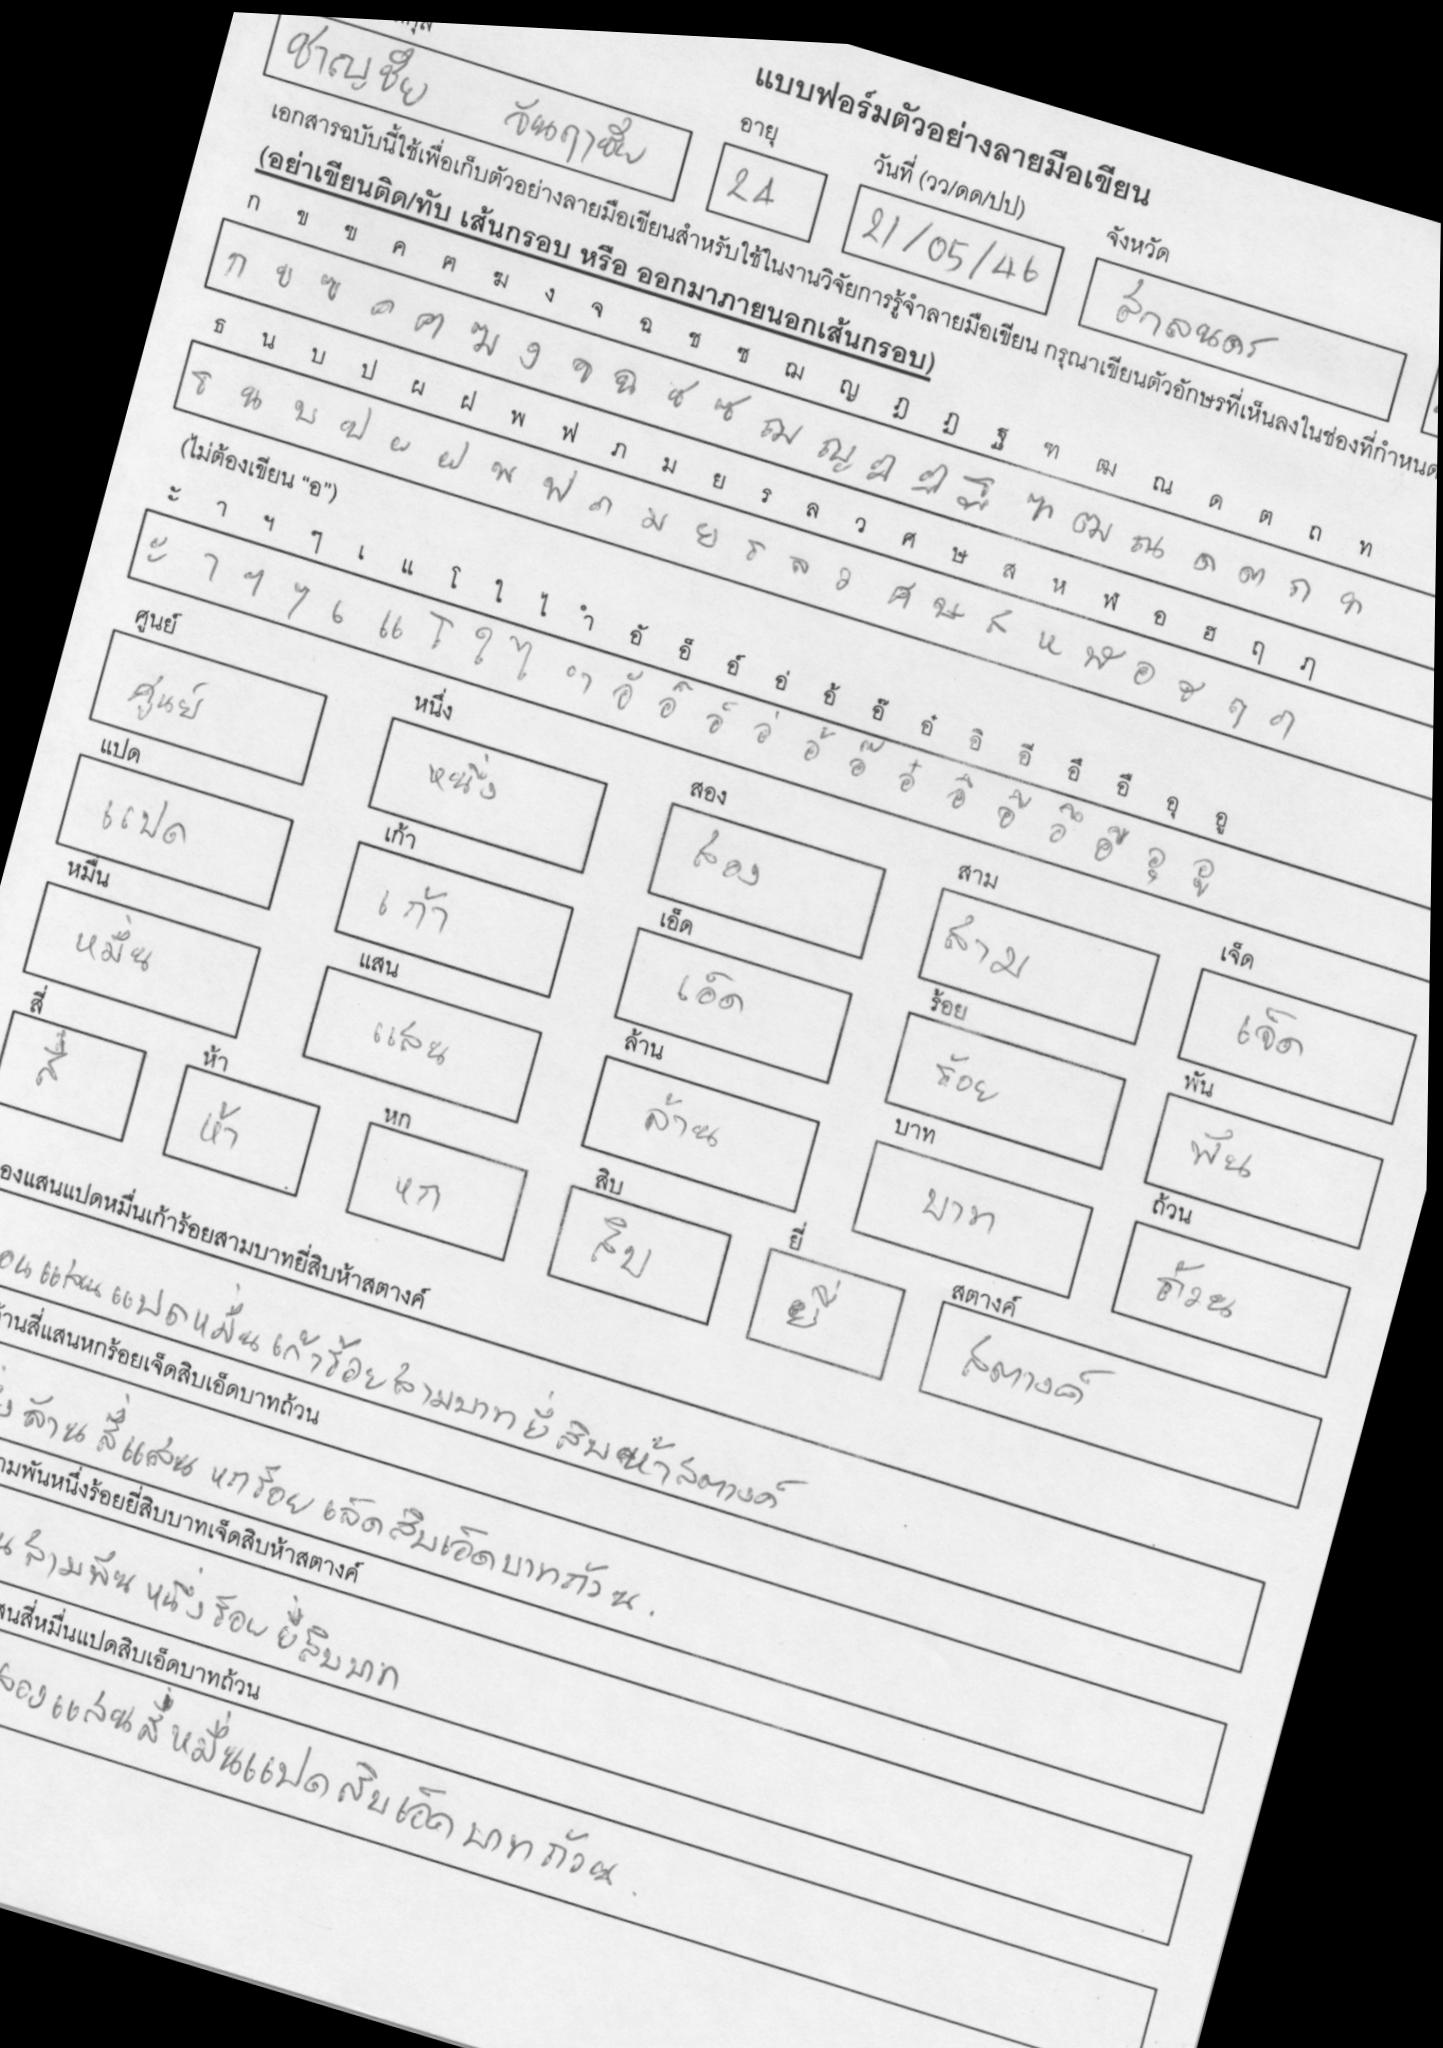 แบบฟอร์มตัวอย่างลายมือเขียน
อายุ วันที่ (วว/ดด/ปป) จังหวัด
ชาญชัย 24 21/05/46 สกลนคร
เอกสารฉบับนี้ใช้เพื่อเก็บตัวอย่างลายมือเขียนสำหรับใช้ในงานวิจัยการรู้จำลายมือเขียน กรุณาเขียนตัวอักษรที่เห็นลงในช่องที่กำหนด
(อย่าเขียนติด/ทับ เส้นกรอบ หรือ ออกมาภายนอกเส้นกรอบ)
ก ข ฃ ค ฅ ฆ ง จ ฉ ช ซ ฌ ญ ฎ ฏ ฐ ฑ ฒ ณ ด ต ถ ท
ก ข ฃ ค ฅ ฆ ง จ ฉ ช ซ ฌ ญ ฎ ฏ ฐ ฑ ฒ ณ ด ต ถ ท
ธ น บ ป ผ ฝ พ ฟ ภ ม ย ร ล ว ศ ษ ส ห ฬ อ ฮ ฤ ฦ
ธ น บ ป ผ ฝ พ ฟ ภ ม ย ร ล ว ศ ษ ส ห ฬ อ ฮ ฤ ฦ
(ไม่ต้องเขียน “อ”)
ะ้ า ฯ ๆ เ แ โ ใ ไ ำ อั อ็ อ์ อ่ อ้ อ๊ อ๋ อิ อี อึ อื อุ อู
ะ้ า ฯ ๆ เ แ โ ใ ไ ำ อั อ็ อ์ อ่ อ้ อ๊ อ๋ อิ อี อึ อื อุ อู
ศูนย์ หนึ่ง สอง สาม เจ็ด
ศูนย์ หนึ่ง สอง สาม เจ็ด
แปด เก้า เอ็ด ร้อย พัน
แปด เก้า เอ็ด ร้อย พัน
หมื่น แสน ล้าน บาท ถ้วน
หมื่น แสน ล้าน บาท ถ้วน
สี่ ห้า หก สิบ ยี่ สตางค์
สี่ ห้า หก สิบ ยี่ สตางค์
องแสนแปดหมื่นเก้าร้อยสามบาทยี่สิบห้าสตางค์
แสนแปดหมื่นเก้าร้อยสามบาทยี่สิบห้าสตางค์
้านสี่แสนหกร้อยเจ็ดสิบเอ็ดบาทถ้วน
ล้านสี่แสนหกร้อยเจ็ดสิบเอ็ดบาทถ้วน.
ามพันหนึ่งร้อยยี่สิบบาทเจ็ดสิบห้าสตางค์
น สามพันหนึ่งร้อยยี่สิบบาท
สนสี่หมื่นแปดสิบเอ็ดบาทถ้วน
สองแสนสี่หมื่นแปดสิบเอ็ดบาทถ้วน.